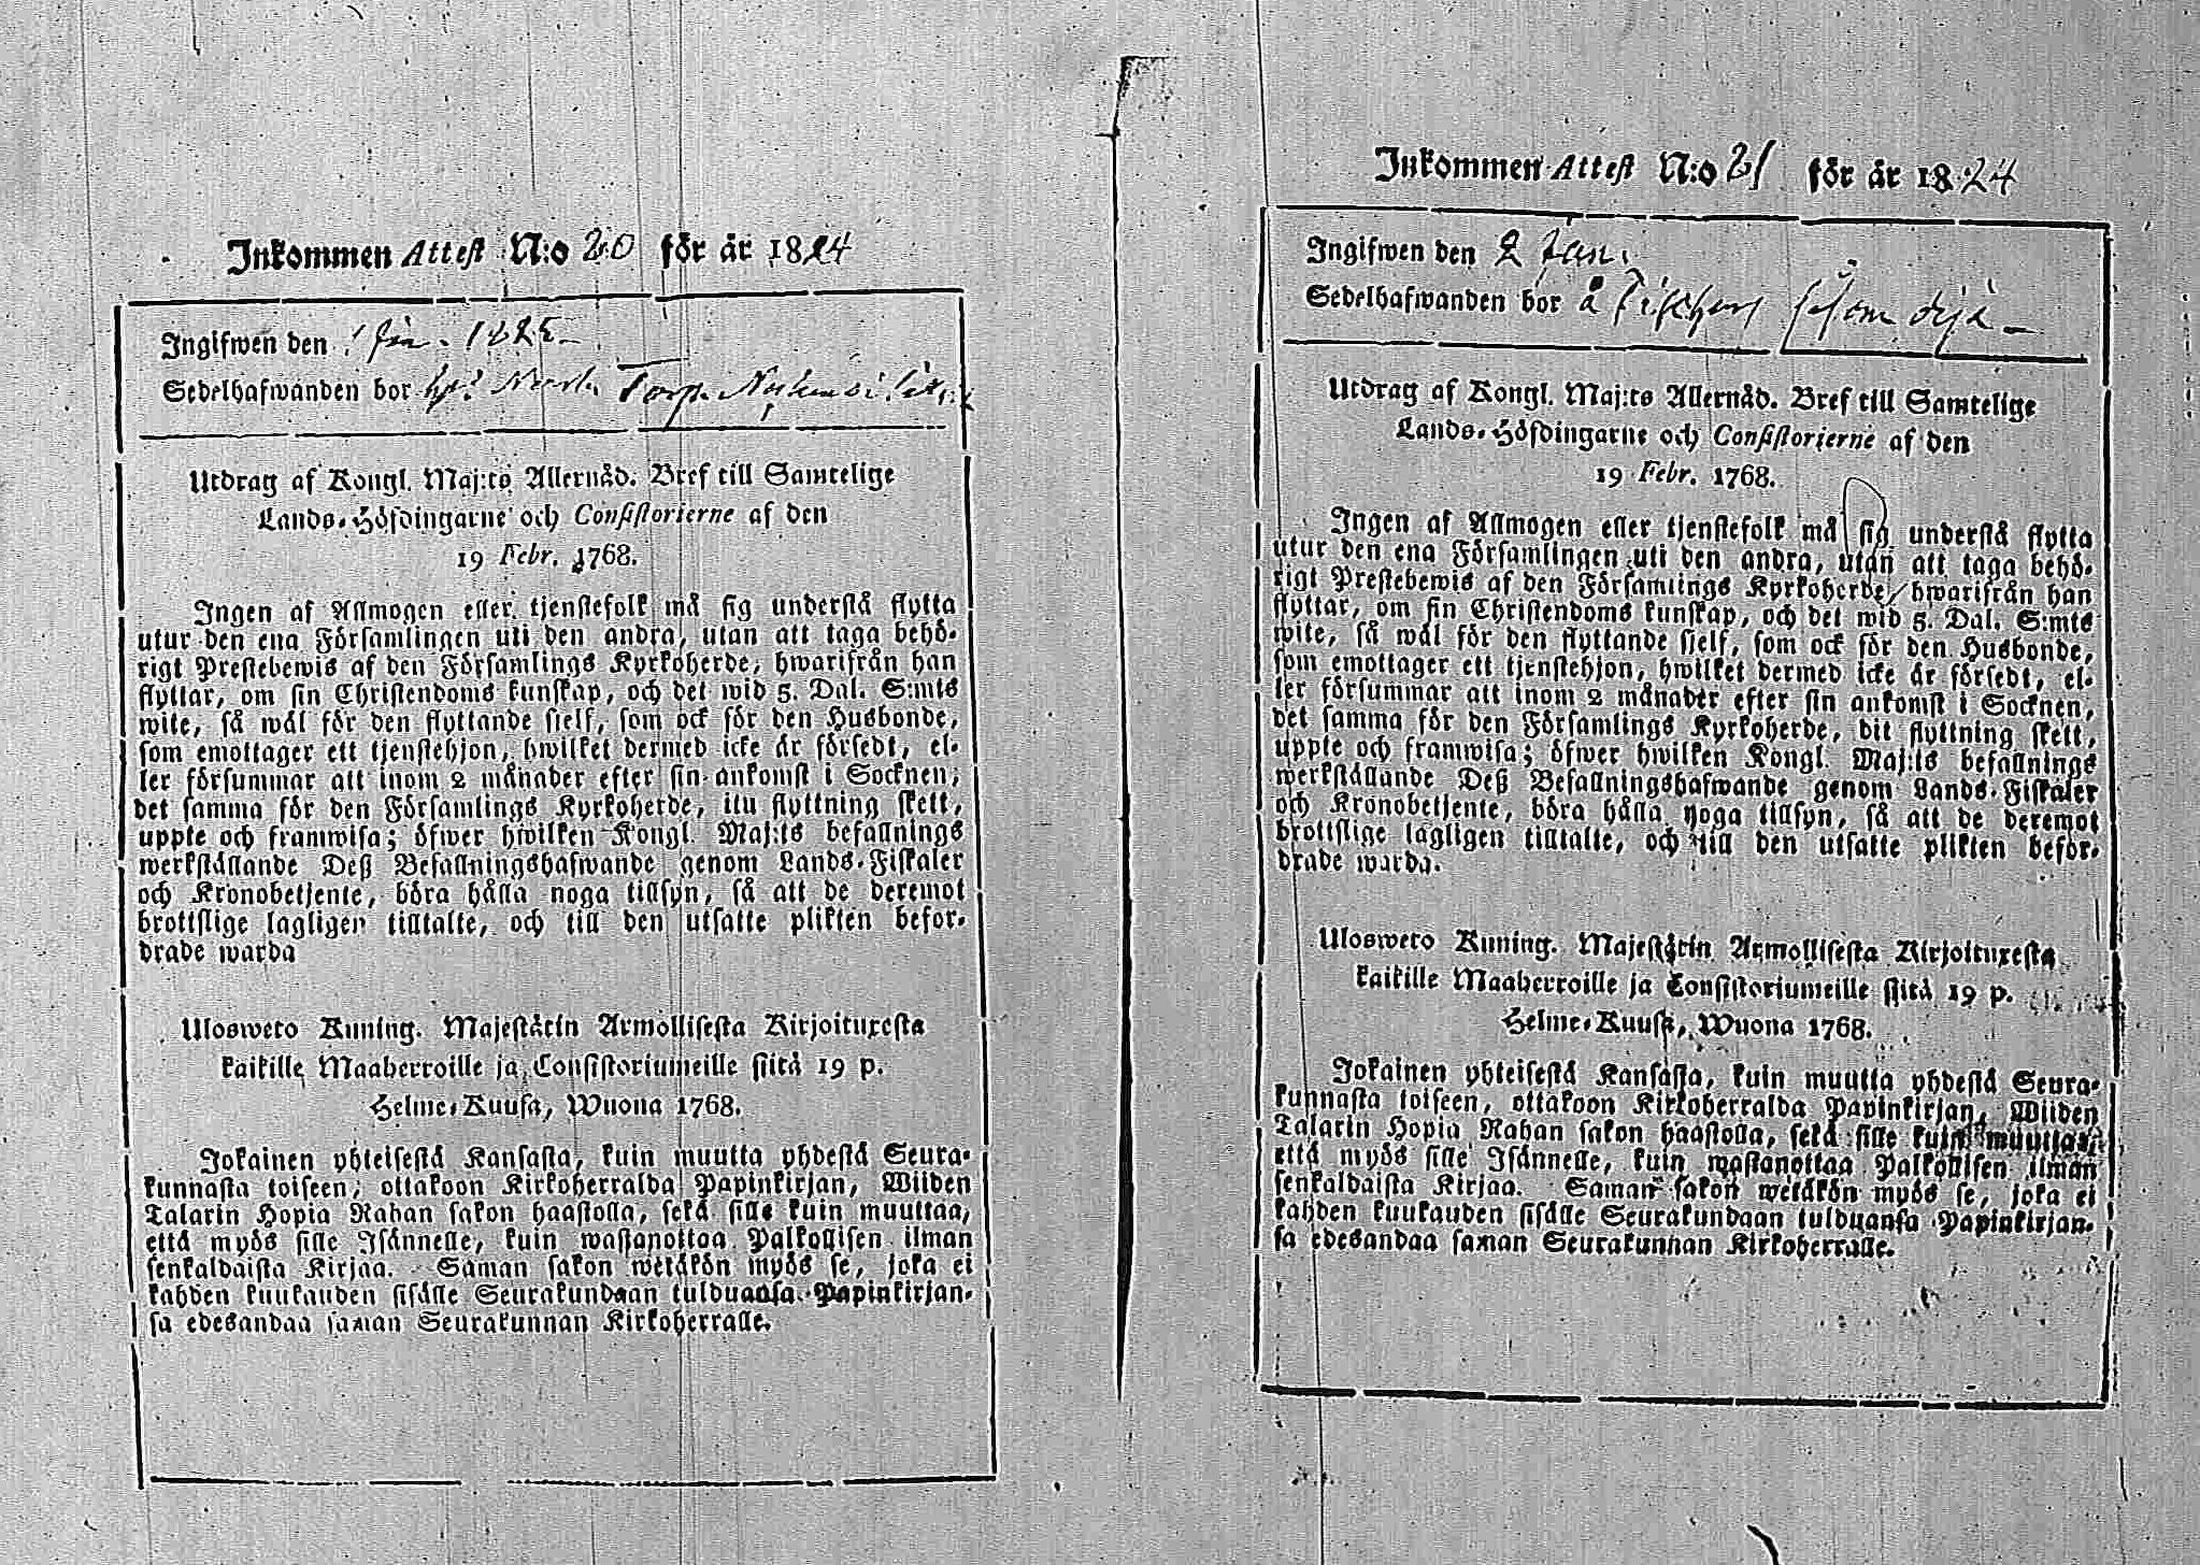 Inkommen Attest N:o 20 för år 1824
Ingifwen den 1 Jan. 1825
Sedelhafwanden bor Torp.
Utdrag af Kongl. Maj:ts Allernåd. Bref till Samtelige
Lands-Höfdingarne och Consistorierne af den
19 Febr. 1768.
Ingen af Allmogen eller tjenstefolk må sig understå flytta
utur den ena Församlingen uti den andra, utan att taga behö-
rigt Prestebewis af den Församlings Kyrkoherde, hwarifrån han
flyttar, om sin Christendoms kunskap, och det wid 5. Dal. S:mts
wite, så wäl för den flyttande sielf, som ock för den Husbonde,
som emottager ett tjenstehjon, hwilket dermed icke är försedt, el-
ler försummar att inom 2 månader efter sin ankomst i Socknen,
det samma för den Församlings Kyrkoherde, itu flyttning skett,
uppte och framwisa; öfwer hwilken Kongl. Maj:ts befallnings
werkställande Deß Befallningshafwande genom Lands-Fiskaler
och Kronobetjente, böra hålla noga tillsyn, så att de deremot
brottslige lagligen tilltalte, och till den utsatte plikten befor-
drade warda
Ulosweto Kuning. Majestätin Armollisesta Kirjoituxesta
kaikille Maaherroille ja Consistoriumeille siitä 19 p.
Helme-Kuusa, Wuona 1768.
Jokainen yhteisestä Kansasta, kuin muutta yhdestä Seura-
kunnasta toiseen, ottakoon Kirkoherralda Papinkirjan, Wiiden
Talarin Hopia Rahan sakon haastolla, sekä sille kuin muuttaa,
että myös sille Isännelle, kuin wastanottaa Palkollisen ilman
senkaldaista Kirjaa. Saman sakon wetäkön myös se, joka ei
kahden kuukauden sisälle Seurakundaan tulduansa Papinkirjan-
sa edesandaa saman Seurakunnan Kirkoherralle.
Inkommen Attest N:o 21 för år 1824
Ingifwen den 2 Jan.
Sedelhafwanden bor å såsom dejä
Utdrag af Kongl. Maj:ts Allernåd. Bref till Samtelige
Lands-Höfdingarne och Consistorierne af den
19 Febr. 1768.
Ingen af Allmogen eller tjenstefolk må sig understå flytta
utur den ena Församlingen uti den andra, utan att taga behö-
rigt Prestebewis af den Församlings Kyrkoherde, hwarifrån han
flyttar, om sin Christendoms kunskap, och det wid 5. Dal. S:mts
wite, så wäl för den flyttande sielf, som ock för den Husbonde,
som emottager ett tjenstehjon, hwilket dermed icke är försedt, el-
ler försummar att inom 2 månader efter sin ankomst i Socknen,
det samma för den Församlings Kyrkoherde, dit flyttning skett,
uppte och framwisa; öfwer hwilken Kongl. Maj:ts befallnings
werkställande Deß Befallningshafwande genom Lands-Fiskaler
och Kronobetjente, böra hålla noga tillsyn, så att de deremot
brottslige lagligen tilltalte, och till den utsatte plikten befor-
drade warda.
Ulosweto Kuning. Majestätin Armollisesta Kirjoituxesta
kaikille Maaherroille ja Consistoriumeille siitä 19 p.
Helme-Kuusa, Wuona 1768.
Jokainen yhteisestä Kansasta, kuin muutta yhdestä Seura-
kunnasta toiseen, ottakoon Kirkoherralda Papinkirjan, Wiiden
Talarin Hopia Rahan sakon haastolla, sekä sille kuin muuttaa,
että myös sille Isännelle, kuin wastanottaa Palkollisen ilman
senkaldaista Kirjaa. Saman sakon wetäkön myös se, joka ei
kahden kuukauden sisälle Seurakundaan tulduansa Papinkirjan-
sa edesandaa saman Seurakunnan Kirkoherralle.